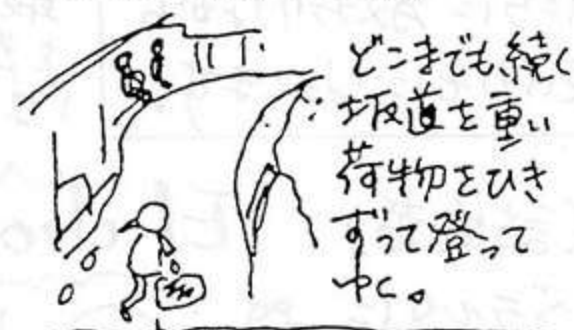 どこまでも、続く
坂道を重い
荷物をひき
ずって登って
ゆく。